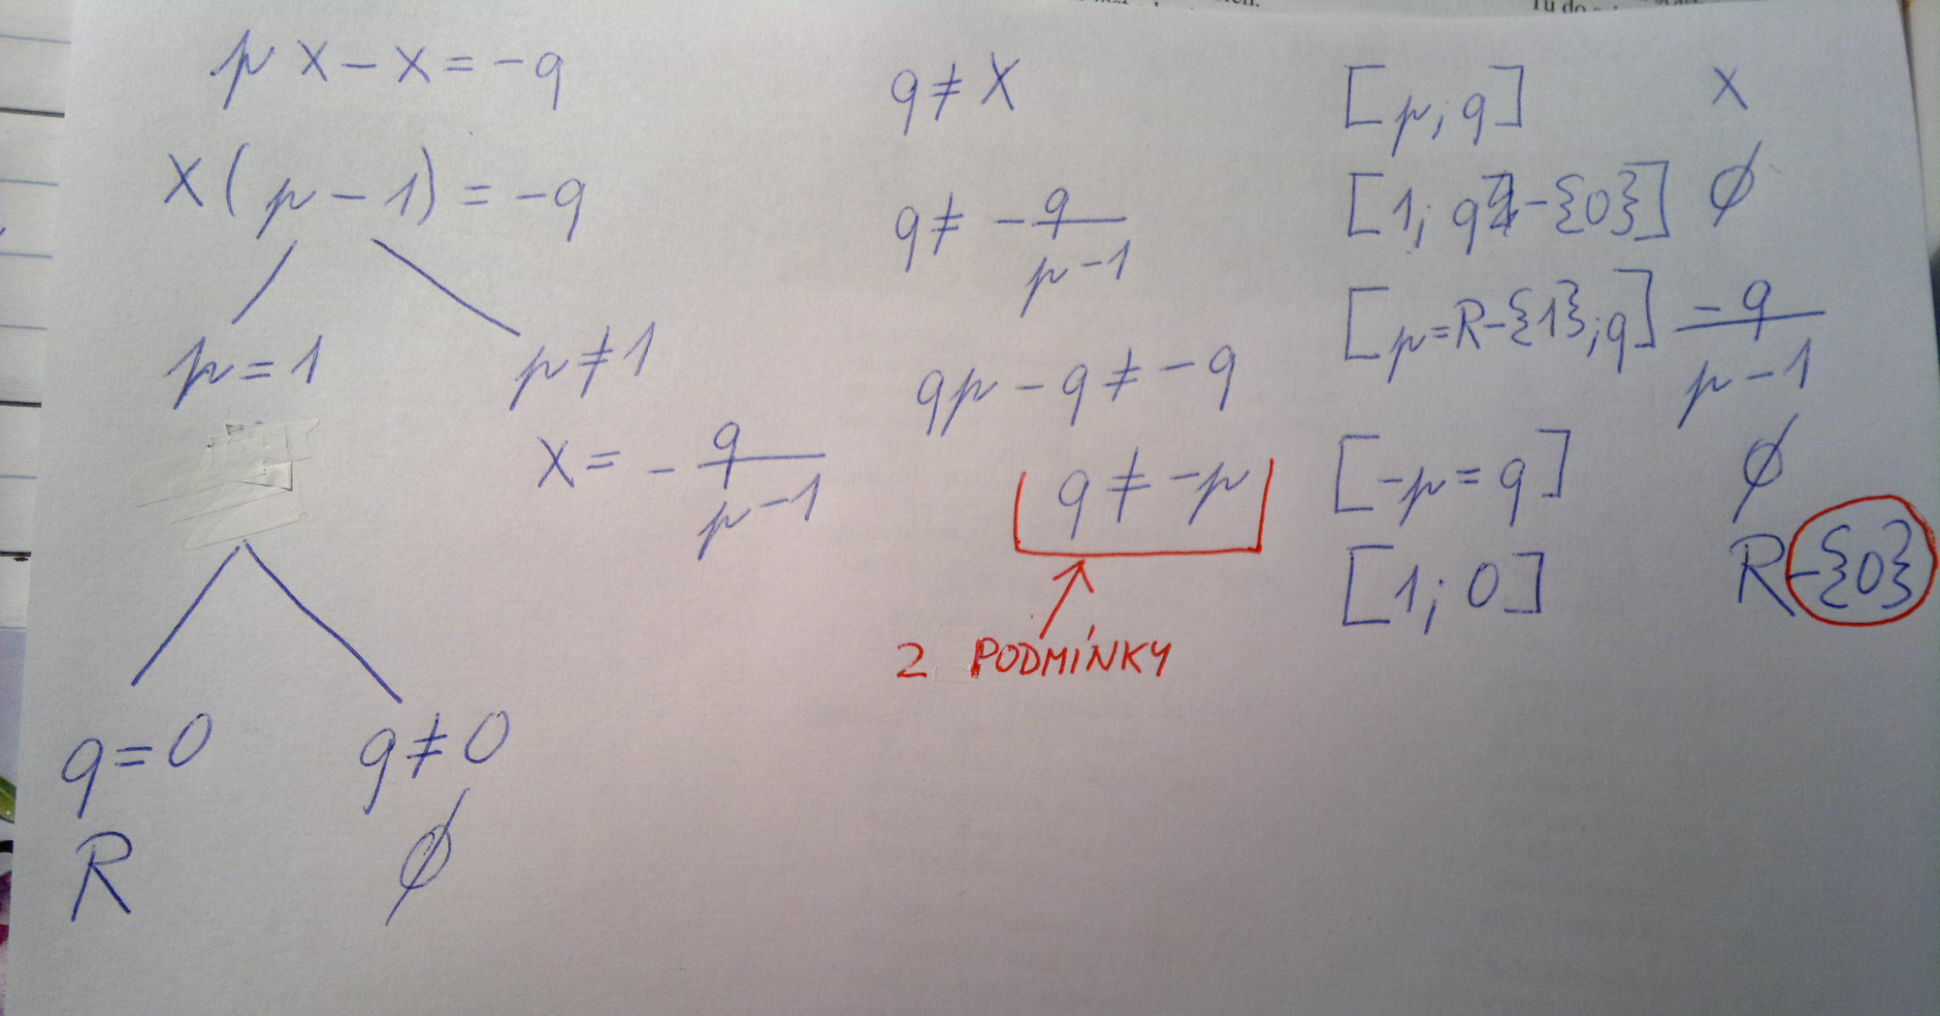 px - x = -q
x(p - 1) = -q
p = 1    p ≠ 1
x = - q/(p - 1)
q = 0    q ≠ 0
R    ∅
q ≠ x
q ≠ - q/(p - 1)
qp - q ≠ -q
q ≠ -p
2 PODMÍNKY
[p; q]    x
[1; q - {0}]    ∅
[p = R - {1}; q]    -q/(p - 1)
[-p = q]    ∅
[1; 0]    R - {0}